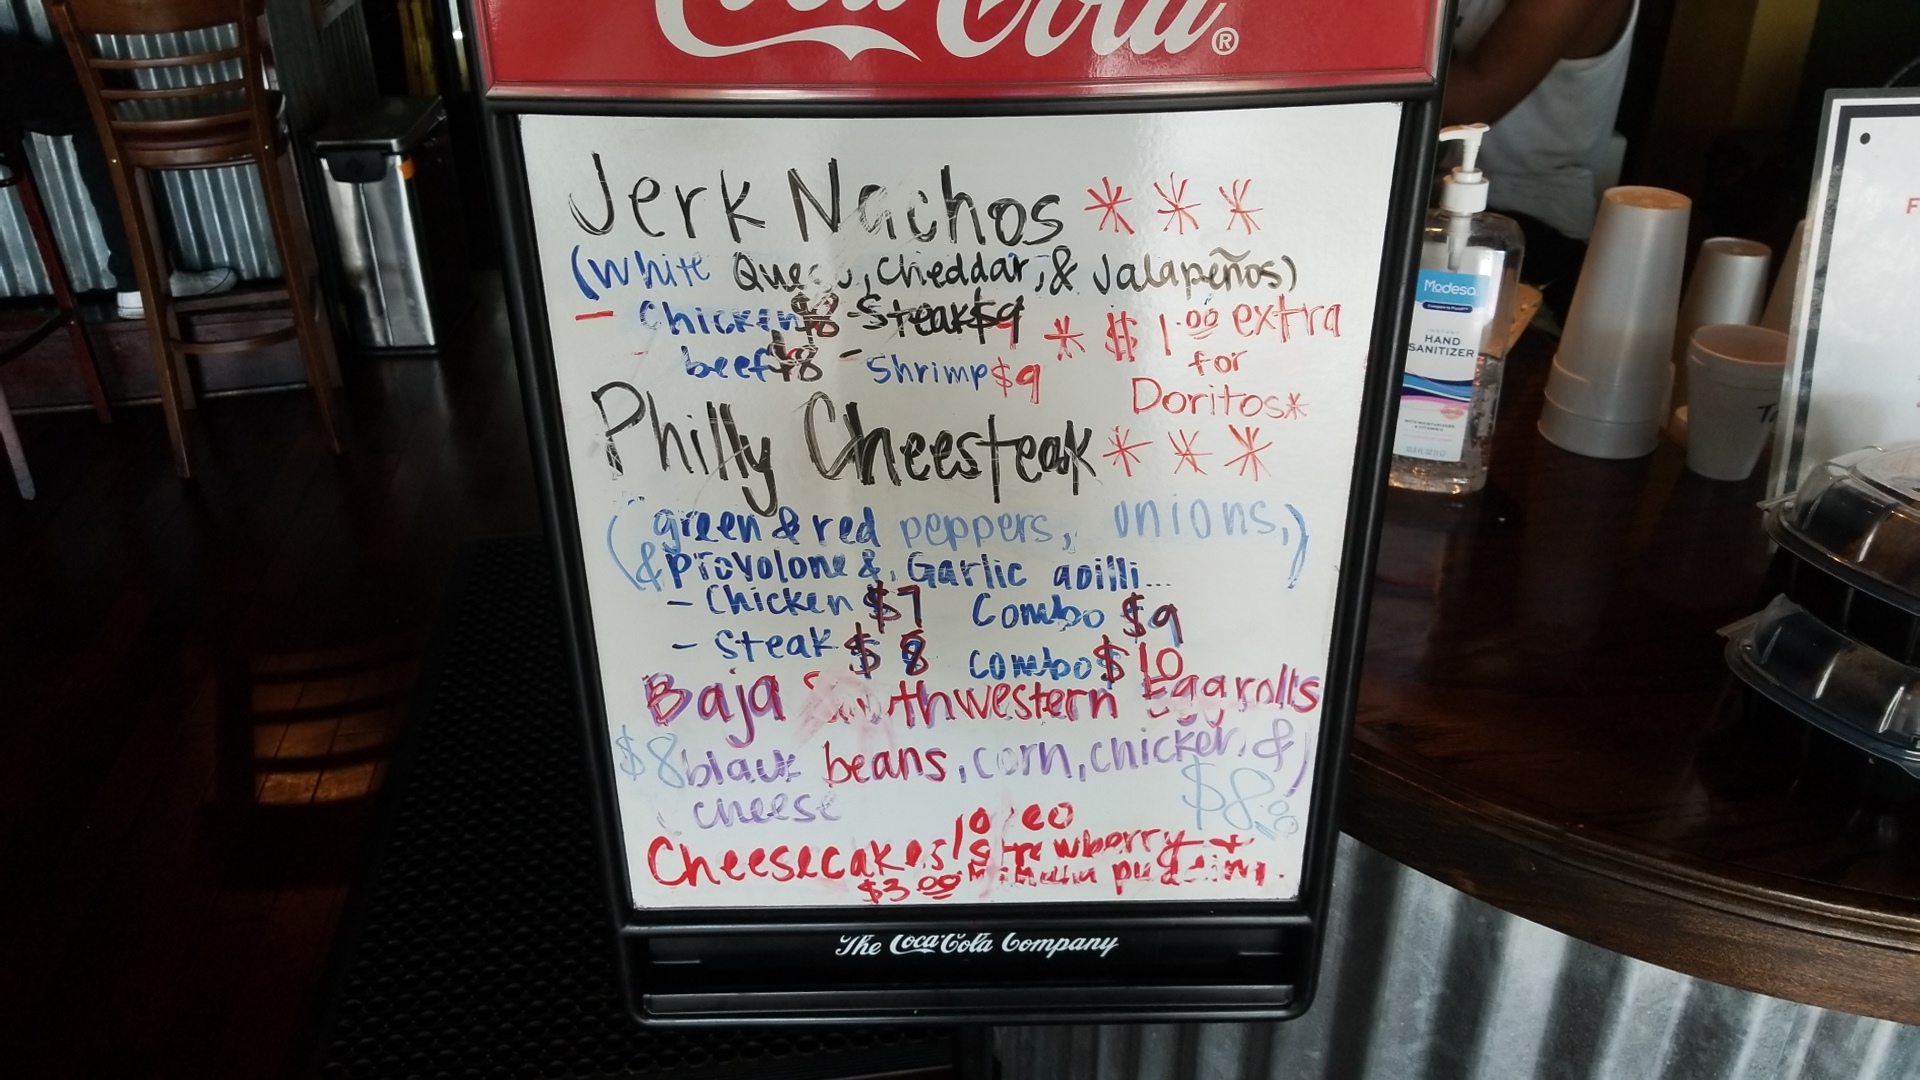 Coca-Cola®
Jerk Nachos * * *
(White Queso, Cheddar, & Jalapeños)
- Chicken $8 - Steak $9 * $1.00 extra
beef $8 - Shrimp $9 for
Doritos*
Philly Cheesteak * * *
(green & red peppers, onions,)
& Provolone & Garlic aoilli...
- Chicken $7 Combo $9
- Steak $8 Combo $10
Baja Southwestern Eggrolls
$8 black beans, corn, chicken, &)
cheese $8.00
Cheesecakes
Strawberry +
$3.00 pudding.
The Coca-Cola Company
Modesa
INSTANT
HAND
SANITIZER
F